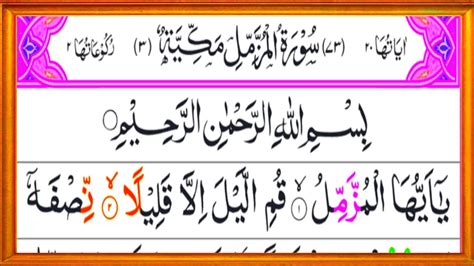 اٰيَاتُهَا ٢٠ (٧٣) سُوْرَةُ الْمُزَّمِّلِ مَكِّيَّةٌ (٣) رُكُوْعَاتُهَا ٢
بِسْمِ اللّٰهِ الرَّحْمٰنِ الرَّحِيْمِ
يٰٓاَيُّهَا الْمُزَّمِّلُ ۙ١ قُمِ الَّيْلَ اِلَّا قَلِيْلًا ۙ٢ نِّصْفَهٗٓ